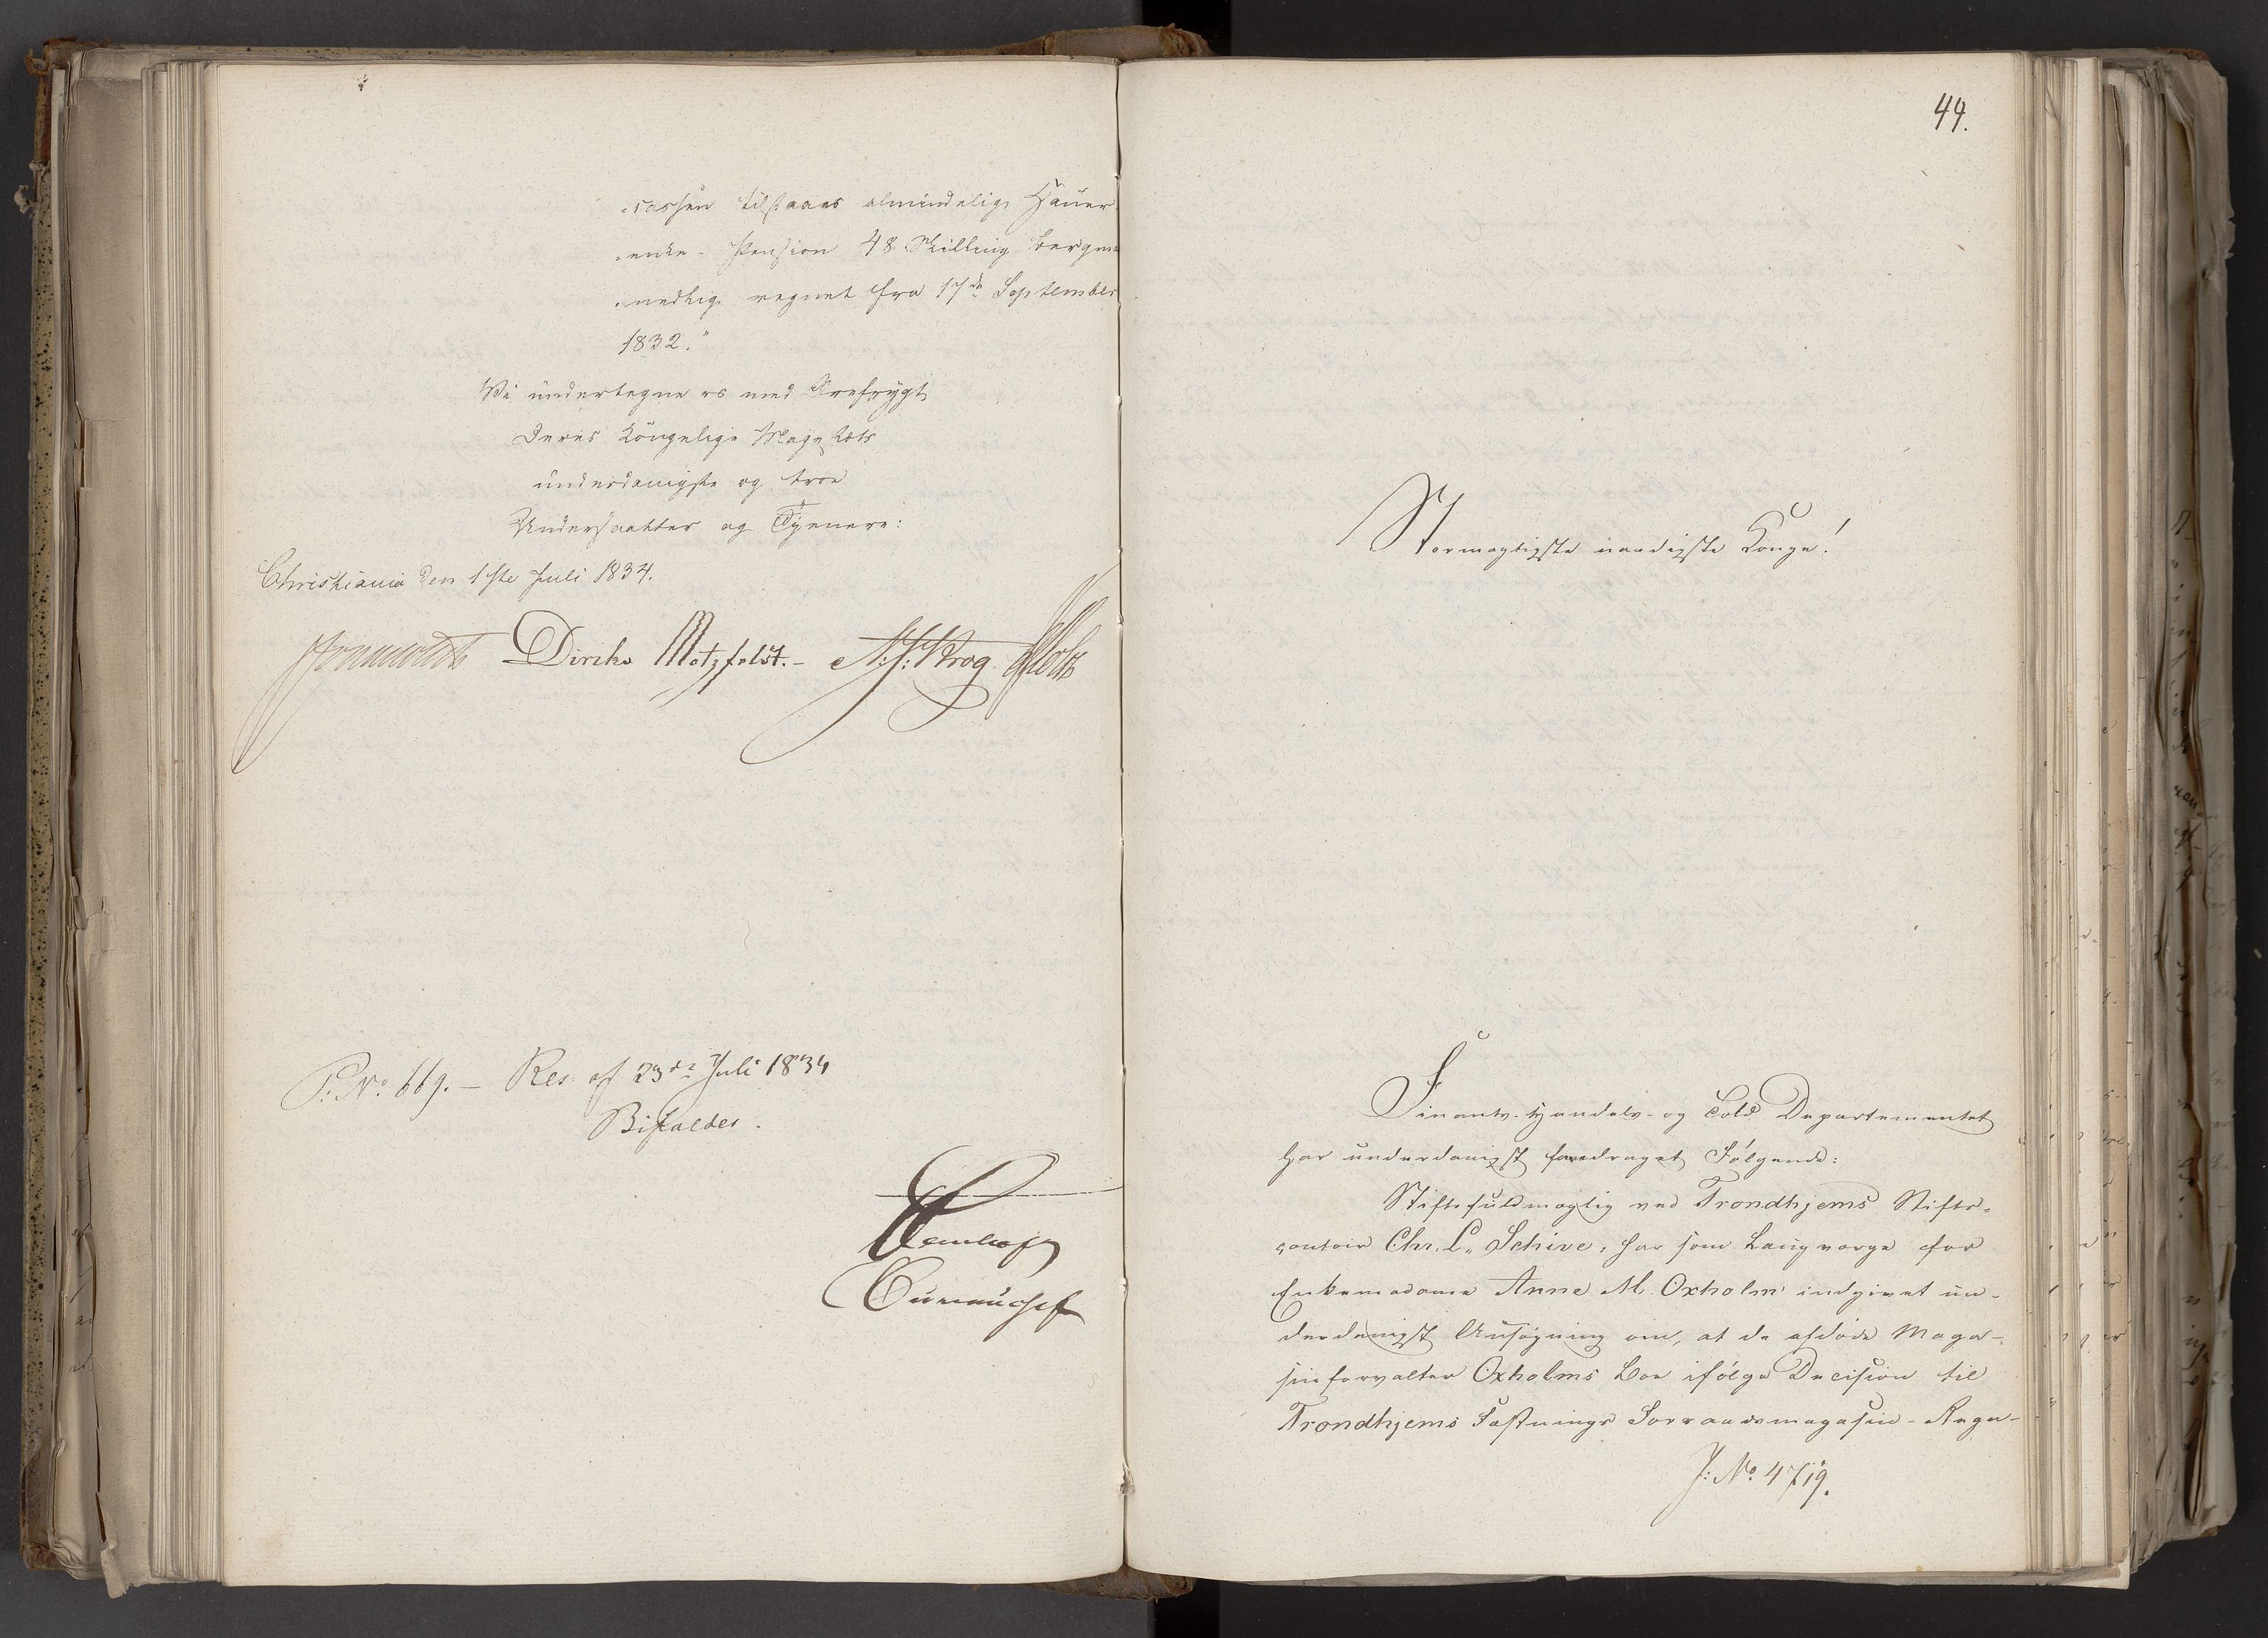 =cassen tilstaaes almindelig Hauer
=enke-Pension 48 Skilling bergmaa
=nedlig regnet fra 17de September
1832."
Vi undertegne os med Ærefrygt
Deres Kongelige Majestæts
underdanigste og troe
Undersaatter og Tjenere:
Christiania den 1ste Juli 1834.
Diriks Motzfeldt.- N:J: Krog Holst
P: No 669.- Res. af 23de Juli 1834
Bifaldes.
44.
Stormægtigste naadigste Konge!
Finants- Handels- og Told Departementet
har underdanigst foredraget Følgende:
Stiftsfuldmægtig ved Trondhjems Stifts-
contoir Chr. L. Schive, har som Laugværge for
Enkemadame Anne M. Oxholm indgivet un-
derdanigst Ansøgning om, at de afdøde Maga-
sinforvalter Oxholms Boe ifølge Decision til
Trondhjems Fæstnings Forraadsmagasin-Regn-
J: No 4719.